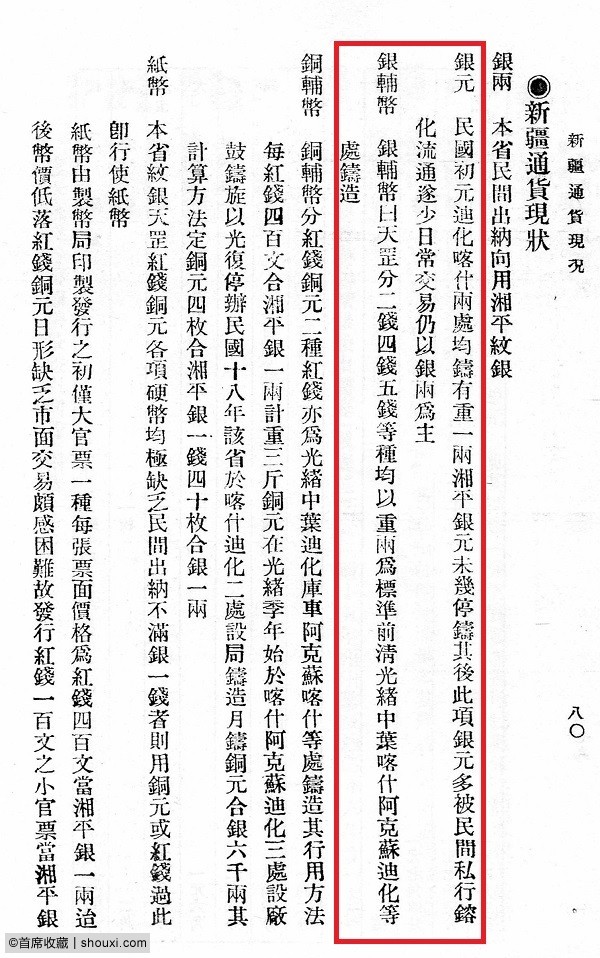 新疆通貨現況
八〇
●新疆通貨現狀
銀兩　本省民間出納向用湘平紋銀
銀元　民國初元迪化喀什兩處均鑄有重一兩湘平銀元未幾停鑄其後此項銀元多被民間私行鎔
化流通遂少日常交易仍以銀兩爲主
銀輔幣　銀輔幣曰天罡分二錢四錢五錢等種均以重兩爲標準前清光緒中葉喀什阿克蘇迪化等
處鑄造
銅輔幣　銅輔幣分紅錢銅元二種紅錢亦爲光緒中葉迪化庫車阿克蘇喀什等處鑄造其行用方法
每紅錢四百文合湘平銀一兩計重三斤銅元在光緒季年始於喀什阿克蘇迪化三處設廠
鼓鑄旋以光復停辦民國十八年該省於喀什迪化二處設局鑄造月鑄銅元合銀六千兩其
計算方法定銅元四枚合湘平銀一錢四十枚合銀一兩
紙幣　本省紋銀天罡紅錢銅元各項硬幣均極缺乏民間出納不滿銀一錢者則用銅元或紅錢過此
卽行使紙幣
紙幣由製幣局印製發行之初僅大官票一種每張票面價格爲紅錢四百文當湘平銀一兩迨
後幣價低落紅錢銅元日形缺乏市面交易頗感困難故發行紅錢一百文之小官票當湘平銀
©首席收藏 | shouxi.com